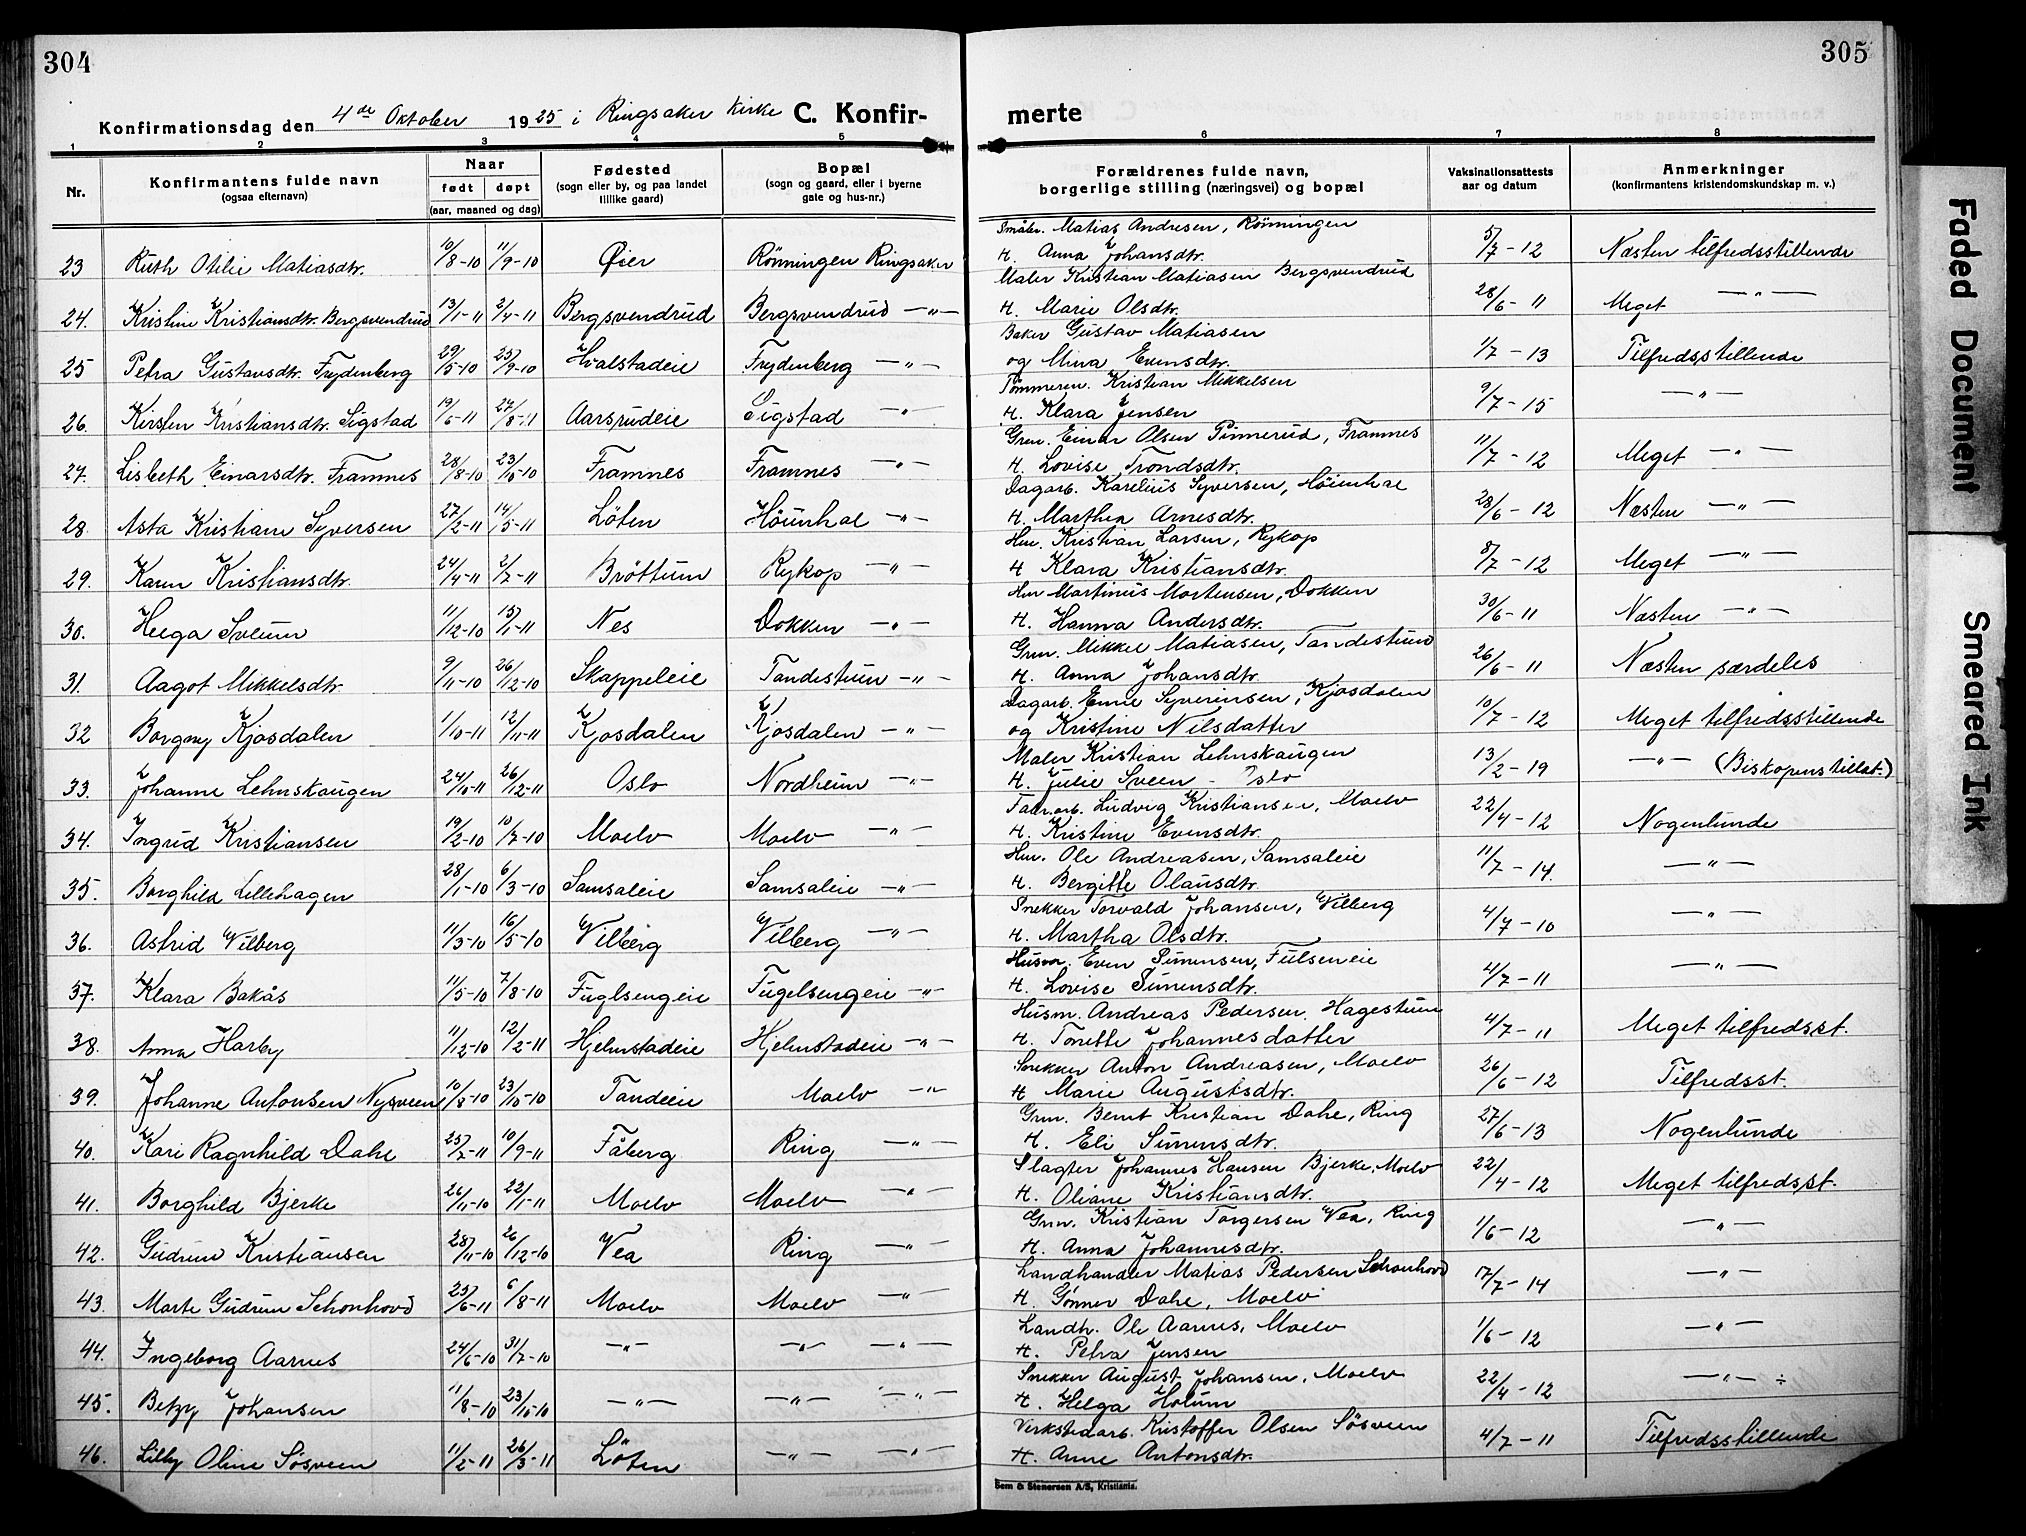 304
305
Konfirmationsdag den 4de Oktober 1925 i Ringsaker Kirke C. Konfir-
merte
1 2 3 4 5
6 7 8
Nr. Konfirmantens fulde navn (ogsaa efternavn) Naar født døpt (aar, maaned og dag) Fødested (sogn eller by, og paa landet tillike gaard) Bopæl (sogn og gaard, eller i byerne gate og hus-nr.)
Forældrenes fulde navn, borgerlige stilling (næringsvei) og bopæl Vaksinationsattests aar og datum Anmerkninger (konfirmantens kristendomskundskap m. v.)
Småbr. Matias Andresen, Rönningen
23 Ruth Otilie Matiasdtr. 10/8-10 11/9-10 Øier Rönningen Ringsaker H. Anna Johansdtr. 5/7-12 Næsten tilfredsstillende
Maler Kristian Matiasen Bergsvendrud
24. Kristine Kristiansdtr. Bergsvendrud 13/1-11 2/4-11 Bergsvendrud Bergsvendrud -"- H. Marie Olsdtr. 28/6-11 Meget -"-
Baker Gustav Matiasen
25 Petra Gustavsdtr. Frydenberg 29/5-10 25/9-10 Hvalstadeie Frydenberg -"- og Mina Evensdtr. 1/7-13 Tilfredsstillende
Tömmerm. Kristian Mikkelsen
26. Kirsten Kristiansdtr. Sigstad 19/6-11 27/8-11 Aarsrudeie Sigstad -"- H. Klara Jensen 9/7-15 -"-
Grm. Einar Olsen Pinnerud, Framnes
27. Lisbeth Einarsdtr. Framnes 28/8-10 23/10-10 Framnes Framnes -"- H. Lovise Trondsdtr. 11/7-12 Meget -"-
Dagarb. Karelius Syversen, Höienhal
28. Asta Kristiane Syversen 27/2-11 14/5-11 Löten Höienhal -"- H. Marthea Arnesdtr. 28/6-12 Næsten -"-
Hm. Kristian Larsen, Rykop
29. Karen Kristiansdtr. 24/4-11 2/7-11 Bröttum Rykop -"- H Klara Kristiansdtr. 8/7-12 Meget -"-
Hm Martinus Mortensen, Dokken
30. Helga Sveum 11/12-10 15/1-11 Nes Dokken -"- H. Hanna Andersdtr. 30/6-11 Næsten -"-
Grm. Mikkel Matiasen, Tandestuen
31. Aagot Mikkelsdtr. 9/11-10 26/12-10 Skappeleie Tandestuen -"- H. Anna Johansdtr. 26/6-11 Næsten særdeles
Dagarb. Enne Syverinsen, Kjosdalen
32 Borgny Kjosdalen 1/10-11 12/11-11 Kjosdalen Kjosdalen -"- og Kristine Nilsdatter 10/7-12 Meget tilfredsstillende
Maler Kristian Lehnskaugen
33. Johanne Lehnskaugen 24/10-11 26/12-11 Oslo Nordheim -"- H. Julie Sveen - Oslo 13/2-19 -"- (Biskopens tillat.)
Fabr.arb. Ludvig Kristiansen, Moelv
34. Ingrid Kristiansen 19/2-10 10/7-10 Moelv Moelv -"- H. Kristine Evensdtr. 22/4-12 Nogenlunde
Hm. Ole Andreasen, Samsaleie
35. Borghild Lillehagen 28/1-10 6/3-10 Samsaleie Samsaleie -"- H. Bergitte Olausdtr. 11/7-14. -"-
Snekker Torvald Johansen, Vilberg
36. Astrid Vilberg 11/3-10 16/5-10 Vilberg Vilberg -"- H. Martha Olsdtr. 4/7-10 -"-
Husm. Even Simensen, Fulseneie
37. Klara Bakås 11/5-10 7/8-10 Fuglsengeie Fugelsengeie -"- H. Lovise Simensdtr. 4/7-11 -"-
Husm. Andreas Pedersen, Hagestuen
38. Anna Harby 11/12-10 12/2-11 Hjelmstadeie Hjelmstadeie -"- H. Tonette Johannesdatter 4/7-11 Meget tilfredsst.
Snekker Anton Andreasen, Moelv
39. Johanne Antonsen Nysveen 10/8-10 23/10-10 Tandeie Moelv -"- H Marie Augustsdtr. 26/6-12 Tilfredsst.
Grm. Bernt Kristian Dahl, Ring
40. Kari Ragnhild Dahl 25/7-11 10/9-11 Fåberg Ring -"- H. Eli Simensdtr. 27/6-13 Nogenlunde
Slagter Johannes Hansen Bjerke, Moelv
41. Borghild Bjerke 26/11-10 22/1-11 Moelv Moelv -"- H. Oliane Kristiansdtr. 22/4-12 Meget tilfredsst.
Grm. Kristian Torgersen Vea, Ring
42. Gudrun Kristiansen 28/11-10 26/12-10 Vea Ring -"- H. Anna Johannesdtr. 1/6-12 -"-
Landhandler Matias Pedersen Schonhovd
43. Marte Gudrun Schonhovd 25/6-11 6/8-11 Moelv Moelv -"- H. Gönner Dahl, Moelv 17/7-14 -"-
Landh. Ole Aarnes, Moelv
44. Ingeborg Aarnes 24/6-10 31/7-10 -"- -"- -"- H. Petra Jensen 1/6-12 -"-
Snekker August Johansen, Moelv
45. Betzy Johansen 11/8-10 23/10-10 -"- -"- -"- H. Helga Holum 22/4-12 -"- ÷
Verkstedarb. Kristoffer Olsen Sösveen
46. Lilly Oline Sösveen 11/2-11 26/3-11 Löten -"- -"- H. Anne Antonsdtr. 4/7-11 Tilfredsstillende
Sem & Stenersen A/S, Kristiania.
Faded Document
Smeared Ink